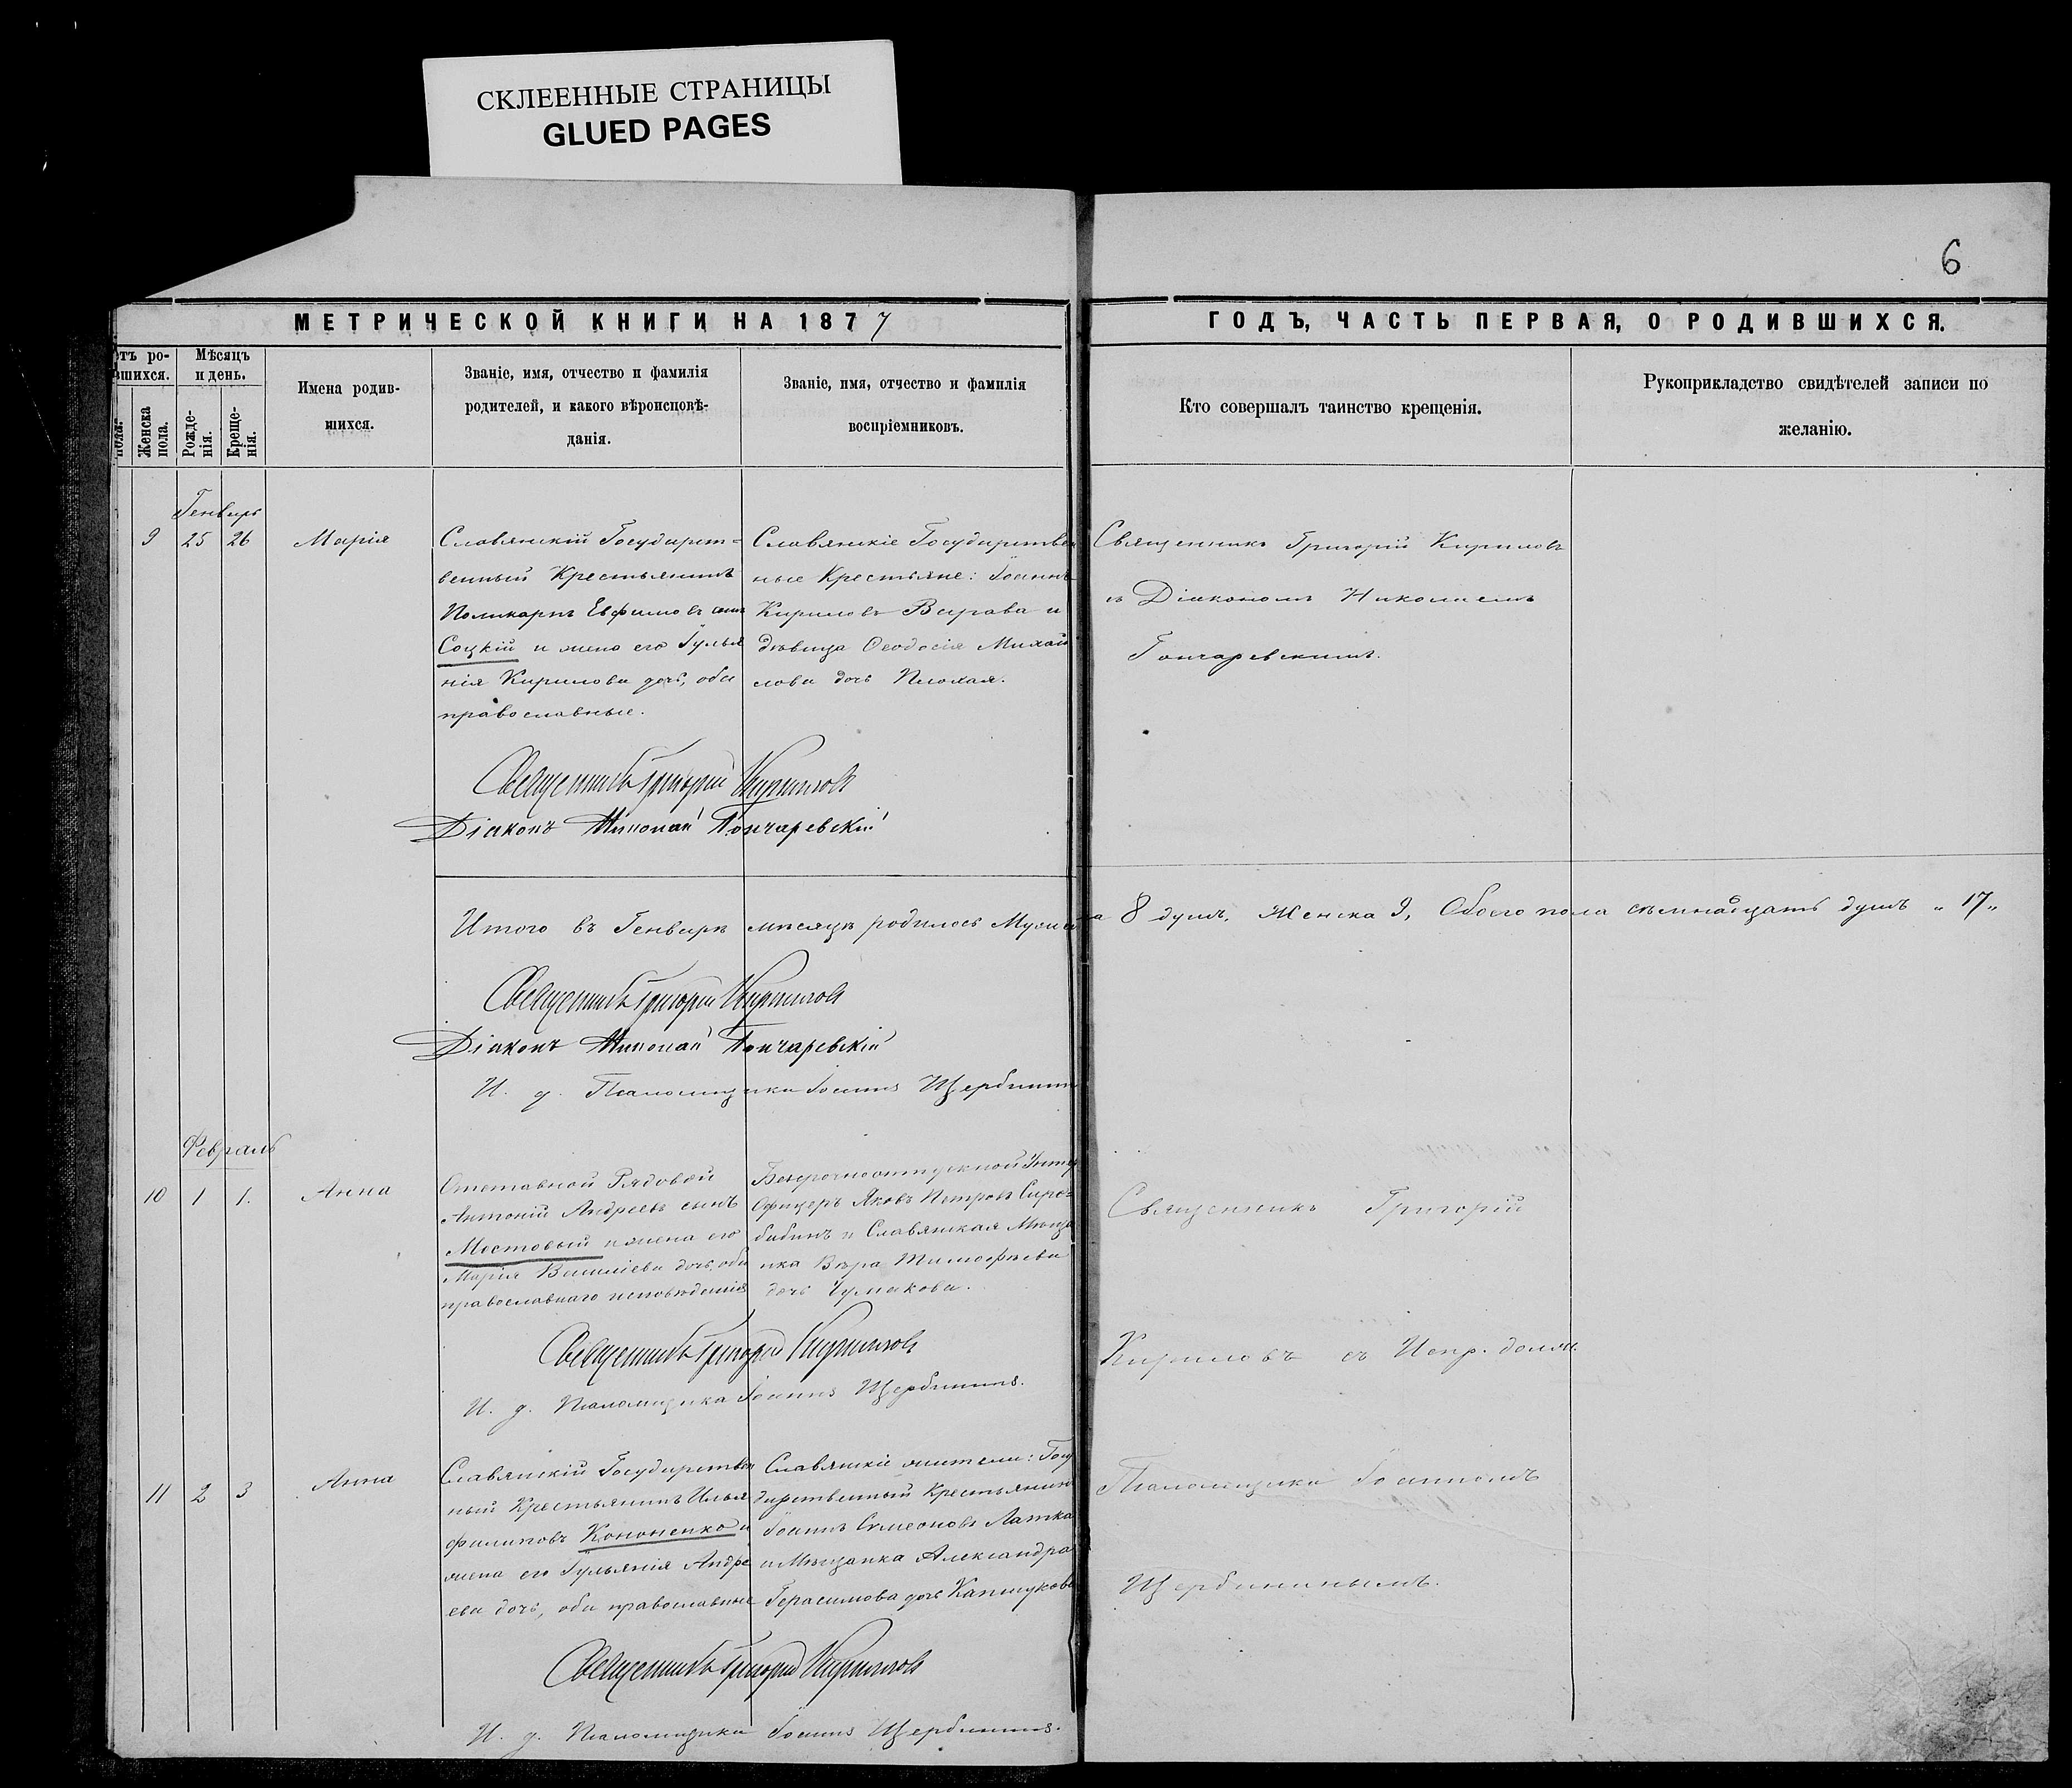 СКЛЕЕННЫЕ СТРАНИЦЫ
GLUED PAGES
6
МЕТРИЧЕСКОЙ КНИГИ НА 1877
ГОДЪ, ЧАСТЬ ПЕРВАЯ, О РОДИВШИХСЯ.
етъ ро-
вшихся.
пола.
Женска
пола.
Мѣсяцъ
и день.
Рожде-
нія.
Креще-
нія.
Имена родив-
шихся.
Званіе, имя, отчество и фамилія
родителей, и какого вѣроисповѣ-
данія.
Званіе, имя, отчество и фамилія
воспріемниковъ.
Кто совершалъ таинство крещенія.
Рукоприкладство свидѣтелей записи по
желанію.
Генварь
9 25 26 Марія
Славянскій Государст-
венный Крестьянинъ
Поликарпъ Евфимовъ сынъ
Соцкій и жена его Іульа
нія Кирилова дочь, оба
православные.
Славянскіе Государствен
ные Крестьяне: Іоаннъ
Кириловъ Варава и
дѣвица Ѳеодосія Михаи
лова дочь Плохая.
Священникъ Григорій Кириловъ
съ Діакономъ Николаемъ
Гончаревскимъ.
Священникъ Григорій Кириловъ
Діаконъ Николай Гончаревскій
Итого въ Генварѣ мѣсяцѣ родилось Мужеска 8 душъ, Женска 9, Обоего пола семнадцать душъ „ 17 „
Священникъ Григорій Кириловъ
Діаконъ Николай Гончаревскій
И. д. Псаломщика Іоаннъ Щербининъ
Февраль
10 1 1. Анна
Отставной Рядовой
Антоній Андреевъ сынъ
Мостовый и жена его
Марія Василіева дочь, оба
православнаго исповѣданія
Безсрочноотпускной Унтер
Офицеръ Яковъ Петровъ
и Славянская Мѣща
нка Вѣра Тимофѣева
дочь Чумакова.
Священникъ Григорій
Кириловъ съ Испр. долж.
Псаломщика Іоанномъ
Щербининымъ.
Священникъ Григорій Кириловъ
И. д. Псаломщика Іоаннъ Щербининъ.
11 2 3 Анна
Славянскій Государствен
ный Крестьянинъ Илья
Филиповъ Кононенко и
жена его Іульянія Андре
ева дочь, оба православные
Славянскіе жители: Госу
дарственный Крестьянинъ
Іоаннъ Симеоновъ Латка
и Мѣщанка Александра
Герасимова дочь
Священникъ Григорій Кириловъ
И. д. Псаломщика Іоаннъ Щербининъ.